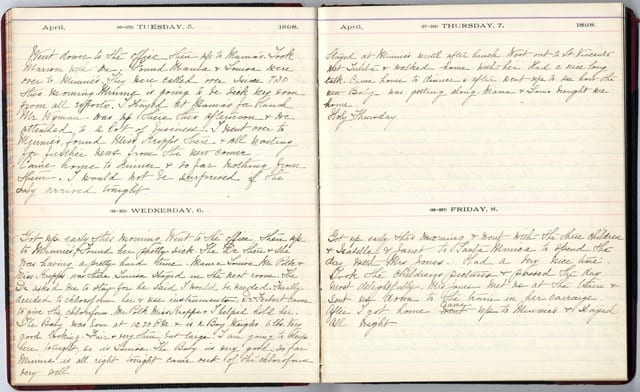 April, TUESDAY, 5. 1898.
Went down to the office then up to Mama's. Took
Marion with me. Found Mama & Louisa were
over to Minnie's. They were called over since 7.30
this morning. Minnie is going to be sick very soon
from all reports. I stayed at Mama's for lunch
Mr Wyman was up there this afternoon & we
attended to a lot of business. I went over to
Minnies, found Miss Knopps there & all waiting
for further news from the new comer.
Came home to dinner & so far nothing from
them. I would not be surprised if the
baby arrived tonight
WEDNESDAY, 6.
Got up early this morning. Went to the office. Then up
to Minnies. Found her pretty sick. The Dr there & she
was having a pretty hard time. Mama, Louisa, Mr Polk &
Miss Knopps was there. Louisa stayed in the next room. The
Dr asked me to stay for he said I would be needed. Finally
decided to chloroform her & use instruments. Dr came
to give the chloroform. Mr Polk Miss Knopps & I helped hold her.
The Baby was born at 12.30 PM & is a Boy. Weighs & is very
good looking. Fair & very thin, but large. I am going to sleep
here tonight, so is Louisa. The Baby is very good so far
Minnie is all right tonight came out of the chloroform
very well
April, THURSDAY, 7. 1898.
Stayed at Minnies until after lunch. Went out to St Vincents
met & walked home with her. Had a nice long
talk. Came home to dinner & after went up to see how the
new Baby was getting along. Mama & Louis brought me
home.
Holy Thursday
FRIDAY, 8.
Got up early this morning & went with the three children
& Isabelle & Janet to Santa Monica to spend the
day with Mrs Jones. Had a very nice time
Took the childrens pictures & passed the day
most delightfully. Mrs Jones met us at the train &
sent us down to the train in her carriage.
After I got home went up to Minnies & stayed
all night